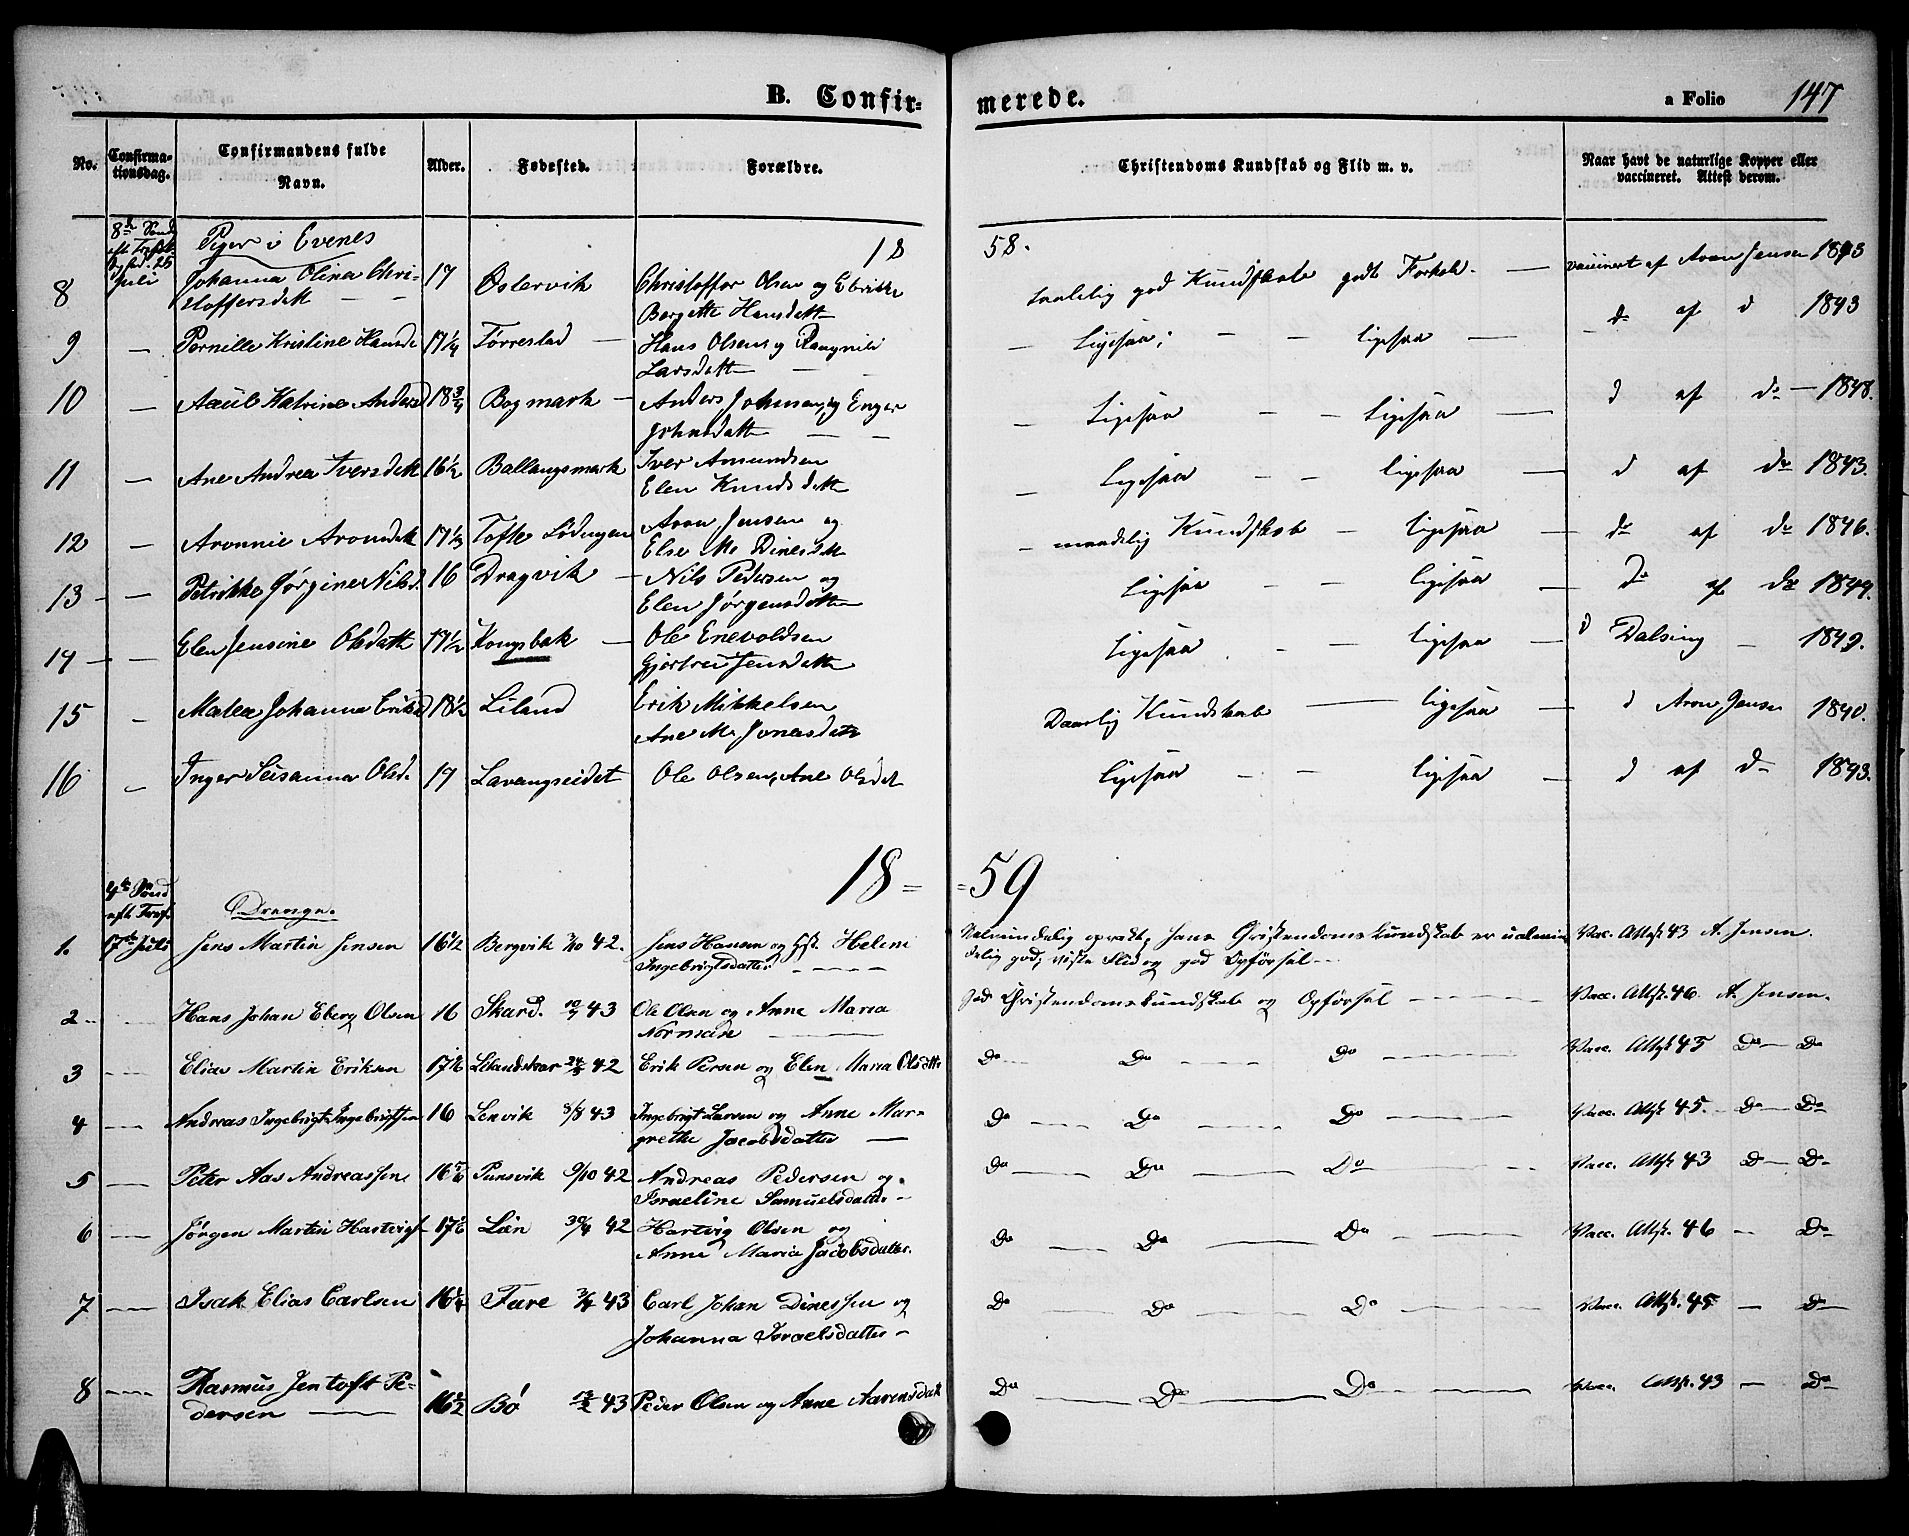 B. Confir-
merede.
a Folio 147
No.
Confirma-
tionsdag.
Confirmandens fulde
Navn.
Alder.
Fødested.
Forældre.
Christendoms Kundskab og Flid m. v.
Naar havt de naturlige Kopper eller
vaccineret. Attest derom.
8de Sønd
Piger i Evenes
18
58.
25
Juli
8 Johanna Olina Chri- 17 Oslervik Christoffer Olsen og
stoffersdatt — — Bergette Hansdatt
taalelig god Kundskab godt Forhold. — vaccinert af Aron Jensen 1843
9 — Pernille Kristine Hansd 17 1/4 Tørrestad — Hans Olsen og
Larsdatt — —
— ligesaa; — — ligesaa — do af d 1843
10 — Katrine Andersd 18 3/4 Bogmark — Anders Johnsen, og Enger
Johnsdatt — —
— ligesaa — — ligesaa — d af do — 1848.
11 — Ane Andrea Iversdatt 16 1/2 Ballangsmark Iver Amundsen
Elen Knudsdatt
— ligesaa — — ligesaa — d af do 1843.
12 — Aronnie Aronsdatt Tofte Lødingen Aron Jensen og
Else M. Dinesdtt
— maadelig Kundskab — ligesaa — do af do 1846.
13 — — Petrikke Jørgine Nilsd. 16 Dragvik — Nils Pedersen og
Elen Jørgensdatter
ligesaa — — ligesaa — do af do 1844.
14 — — Elen Jensine Olsdatt 17 1/2 Kongsbak — Ole Enevoldsen
Gjertru Jensdatter
ligesaa — ligesaa — d Dalsing — 1849.
15 — Malea Johanna Eriksd 18 1/2 Liland Erik Mikkelsen
Ane M. Jonasdatt
Daarlig Kundskab — ligesaa — d Aron Jensen 1840.
16 — Inger Susanna Olsd. 17 Lavangseidet Ole Olsen, Ane Olsdat
ligesaa — — ligesaa — d af do 1843.
18 =
= 59
4de Sønd
eft. Tref.
Drenge.
1. 17de Juli Jens Martin Jensen 16 1/2 Bergvik 42. Jens Hansen og Hst. Helene
Ingebrigtsdatter — — —
hans Christendomskundskab er ualmin
delig god; viste Flid og god Opførsel —
Vac. Attst. 43 A. Jensen.
2 — — Hans Johan Eberg Olsen 16 Skard. 43 Ole Olsen og Anne Maria
Normade —
God Christendomskundskab og Opførsel — — — Vacc. Attst. 46 A. Jensen.
3 — — Elias Martin Eriksen 17 Lilandskar 42 Erik Persen og Elen Maria Olsdatter
Do — Do — Do — Vacc. Attst. 45 Do — Do
4 — — Andreas Ingebrigt Ingebrigtsen 16 Lenvik 5/8 43 Ingebrigt Larsen og Anne Mar-
grethe Jacobsdatter —
Do — Do — Do — Vacc. Attst. 45. Do — Do
5 — — Peter Aas Andreassen 16 Punsvik 9/10 42 Andreas Pedersen og
Israeline Samuelsdatter —
Do — Do — Do — Vacc. Attst. 43 Do — Do
6 — — Jørgen Martin Hartvigs 17 42 Hartvig Olsen og
Anne Maria Jacobsdatter.
Do — Do — Do — Vacc. Attst. 46 — Do
7 — — Isak Elias Carlsen 16 1/4 43 Carl Johan Dinessen og
Johanna Israelsdatter —
Do — Do — Do — Vacc. Attst. 45 — Do
8 — — Rasmus Jentoft Pe-
dersen — 16 1/2 Bø 43 Peder Olsen og Anne Aarensdatt
Do — Do — Do — Vacc. Attst. 43 — Do